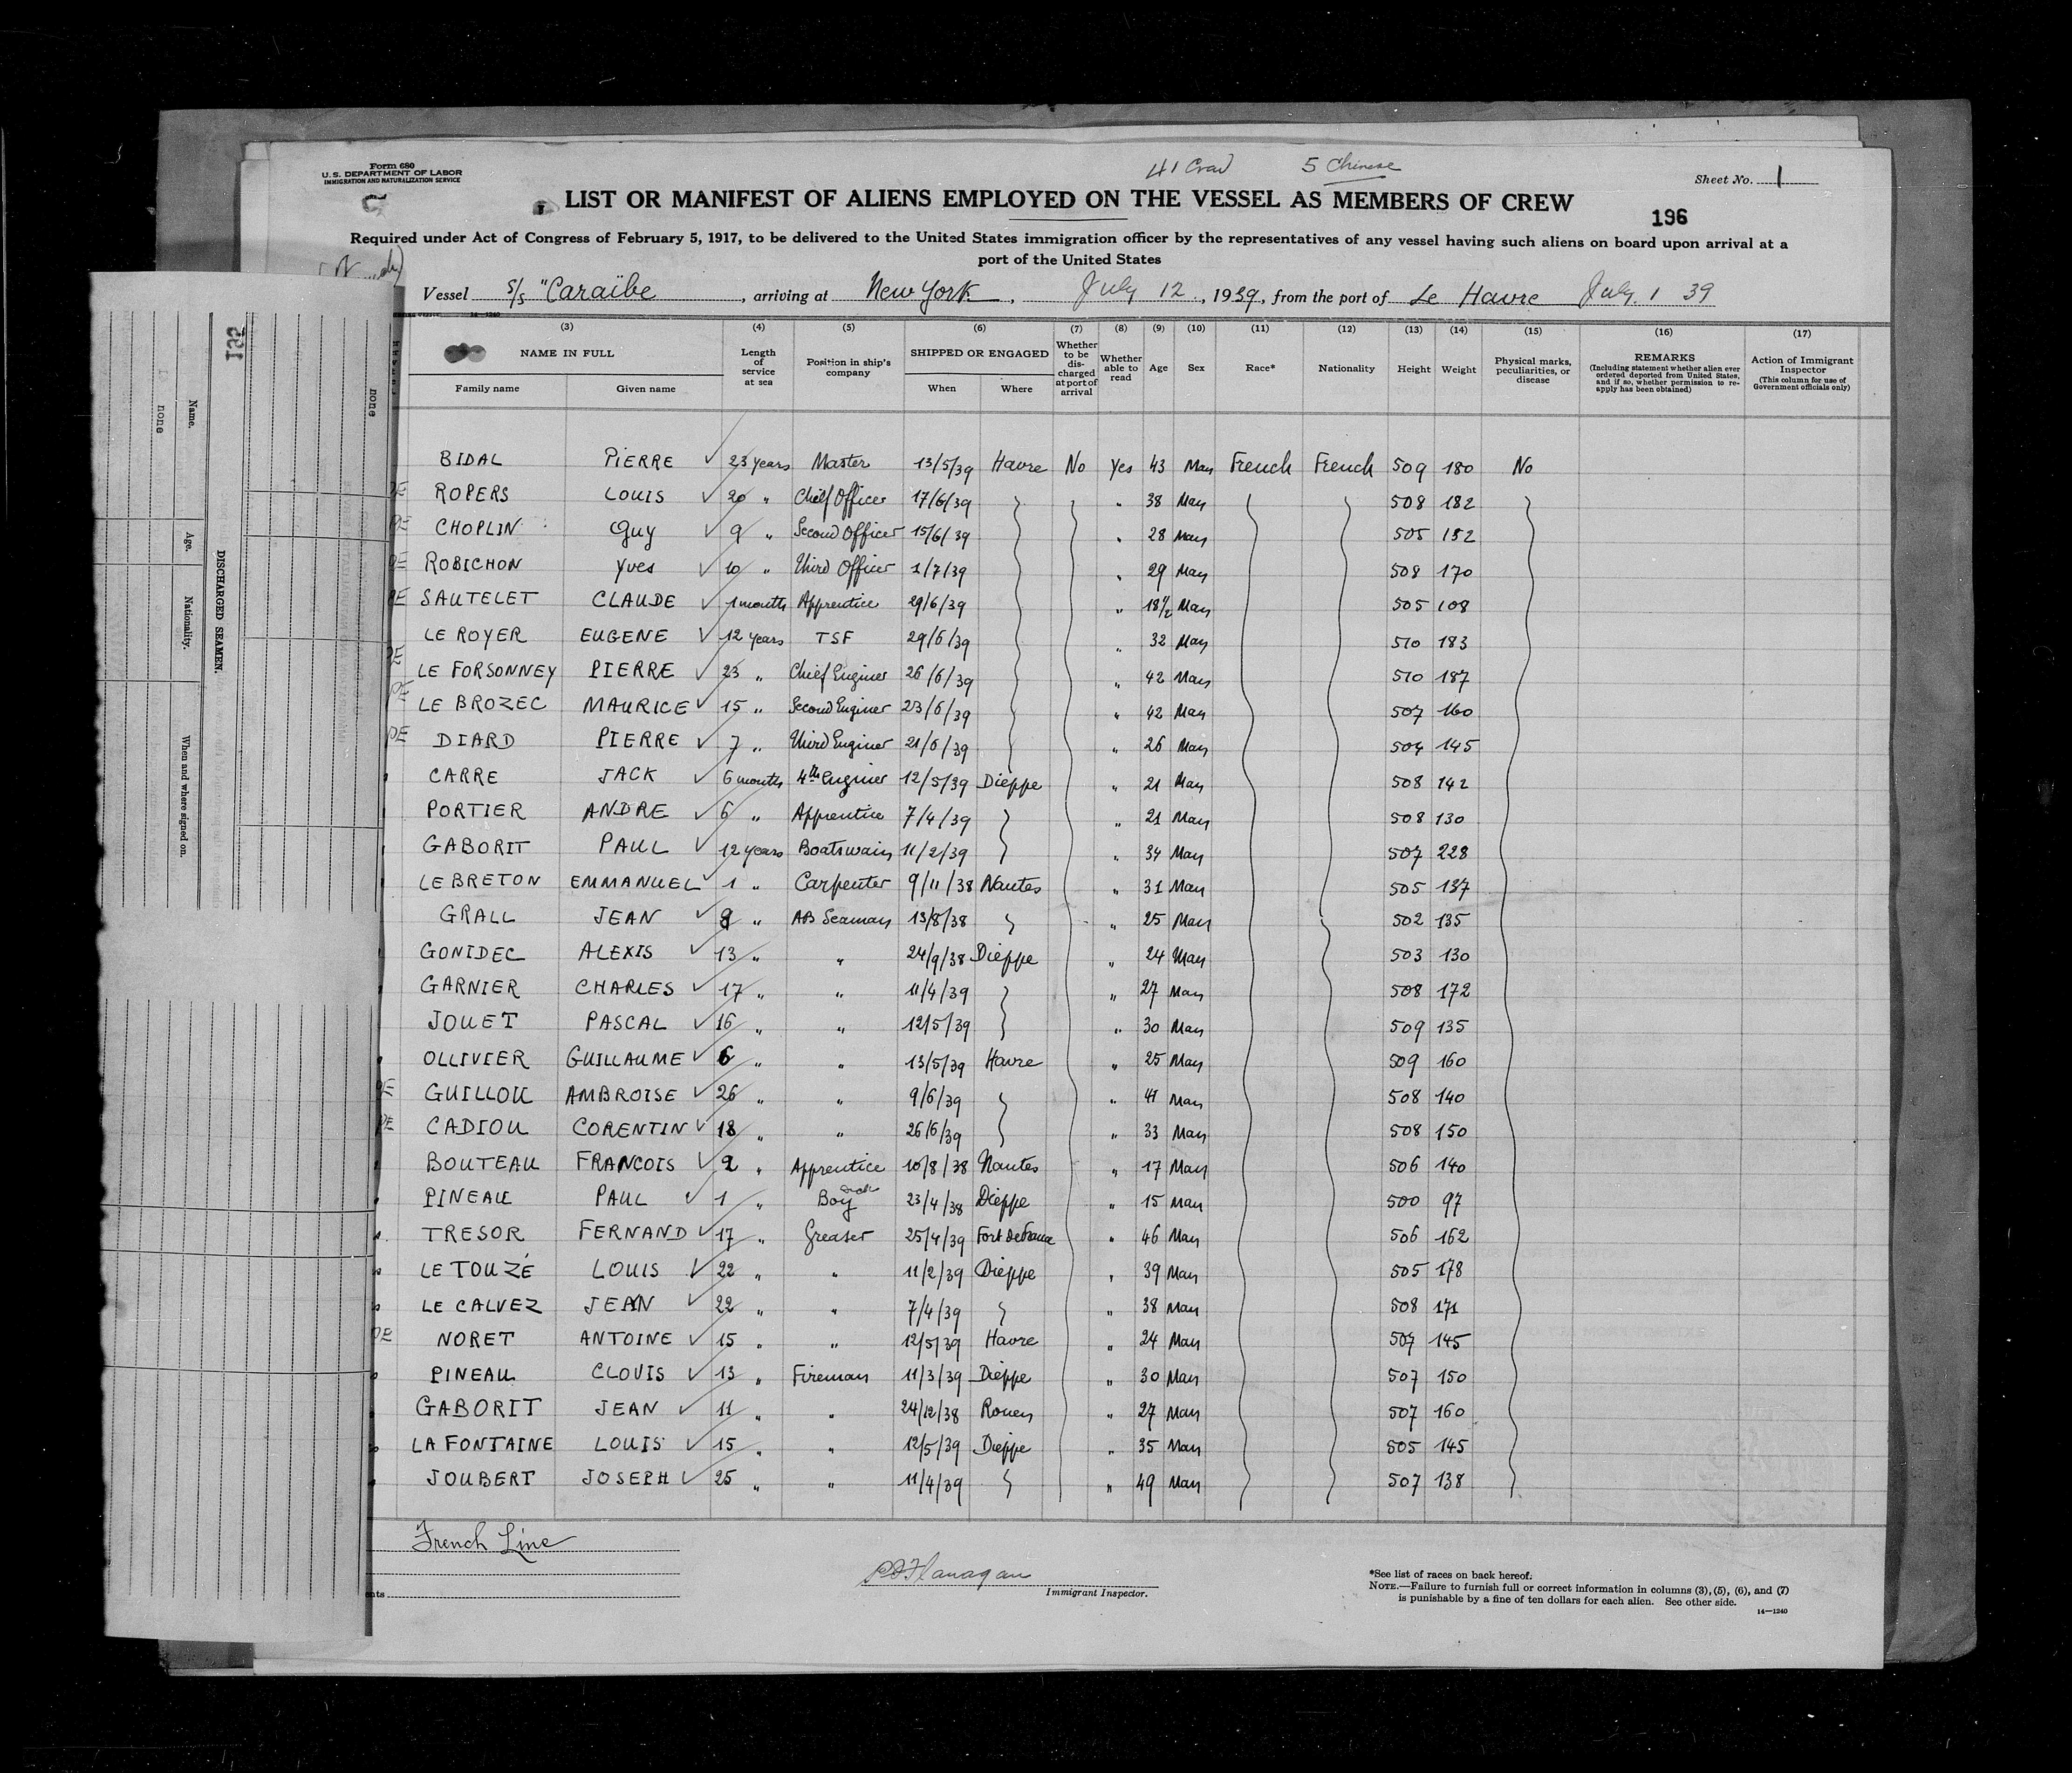 Form 680
U.S. DEPARTMENT OF LABOR
IMMIGRATION AND NATURALIZATION SERVICE
5 Chinese
Sheet No. 1
LIST OR MANIFEST OF ALIENS EMPLOYED ON THE VESSEL AS MEMBERS OF CREW
196
Required under Act of Congress of February 5, 1917, to be delivered to the United States immigration officer by the representatives of any vessel having such aliens on board upon arrival at a
port of the United States
Vessel S/S "Caraïbe, arriving at New York, July 12, 1939, from the port of Le Havre July 1 39
(3) (4) (5) (6) (7) (8) (9) (10) (11) (12) (13) (14) (15) (16) (17)
NAME IN FULL Family name Given name Length of service at sea Position in ship's company SHIPPED OR ENGAGED When Where Whether to be discharged at port of arrival Whether able to read Age Sex Race* Nationality Height Weight Physical marks, peculiarities, or disease REMARKS (Including statement whether alien ever ordered deported from United States, and if so, whether permission to re-apply has been obtained) Action of Immigrant Inspector (This column for use of Government officials only)
BIDAL PIERRE ✓ 23 years Master 13/5/39 Havre No Yes 43 Man French French 509 180 No
PE ROPERS LOUIS ✓ 20 " Chief Officer 17/6/39 " 38 Man 508 182
PE CHOPLIN Guy ✓ 9 " Second Officer 15/6/39 " 28 Man 505 152
PE ROBICHON Yves ✓ 10 " Third Officer 1/7/39 " 29 Man 508 170
PE SAUTELET CLAUDE ✓ 1 month Apprentice 29/6/39 " 18½ Man 505 108
LE ROYER EUGENE ✓ 12 years TSF 29/6/39 " 32 Man 510 183
PE LE FORSONNEY PIERRE ✓ 23 " Chief Enginer 26/6/39 " 42 Man 510 187
PE LE BROZEC MAURICE ✓ 15 " Second Enginer 23/6/39 " 42 Man 507 160
PE DIARD PIERRE ✓ 7 " Third Enginer 21/6/39 " 26 Man 504 145
CARRE JACK ✓ 6 months 4th Enginer 12/5/39 Dieppe " 21 Man 508 142
PORTIER ANDRE ✓ 6 " Apprentice 7/4/39 " 21 Man 508 130
GABORIT PAUL ✓ 12 years Boatswain 11/2/39 " 34 Man 507 228
LE BRETON EMMANUEL ✓ 1 " Carpenter 9/11/38 Nantes " 31 Man 505 137
GRALL JEAN ✓ 8 " AB Seaman 13/8/38 " 25 Man 502 135
GONIDEC ALEXIS ✓ 13 " " 24/9/38 Dieppe " 24 Man 503 130
GARNIER CHARLES ✓ 17 " " 11/4/39 " 27 Man 508 172
JOUET PASCAL ✓ 16 " " 12/5/39 " 30 Man 509 135
OLLIVIER GUILLAUME ✓ 6 " " 13/5/39 Havre " 25 Man 509 160
PE GUILLOU AMBROISE ✓ 26 " " 9/6/39 " 41 Man 508 140
PE CADIOU CORENTIN ✓ 18 " " 26/6/39 " 33 Man 508 150
BOUTEAU FRANCOIS ✓ 2 " Apprentice 10/8/38 Nantes " 17 Man 506 140
PINEAU PAUL ✓ 1 " Boy 23/4/38 Dieppe " 15 Man 500 97
TRESOR FERNAND ✓ 17 " Greaser 25/4/39 Fort de France " 46 Man 506 162
LE TOUZÉ LOUIS ✓ 22 " " 11/2/39 Dieppe " 39 Man 505 178
LE CALVEZ JEAN ✓ 22 " " 7/4/39 " 38 Man 508 171
PE NORET ANTOINE ✓ 15 " " 12/5/39 Havre " 24 Man 507 145
PINEAU CLOVIS ✓ 13 " Fireman 11/3/39 Dieppe " 30 Man 507 150
GABORIT JEAN ✓ 11 " " 24/12/38 Rouen " 27 Man 507 160
LA FONTAINE LOUIS ✓ 15 " " 12/5/39 Dieppe " 35 Man 505 145
JOUBERT JOSEPH ✓ 25 " " 11/4/39 " 49 Man 507 138
French Line
Flanagan
Immigrant Inspector.
*See list of races on back hereof.
NOTE.—Failure to furnish full or correct information in columns (3), (5), (6), and (7)
is punishable by a fine of ten dollars for each alien. See other side.
14—1240
DISCHARGED SEAMEN.
Name. Age. Nationality. When and where signed on.
none
none